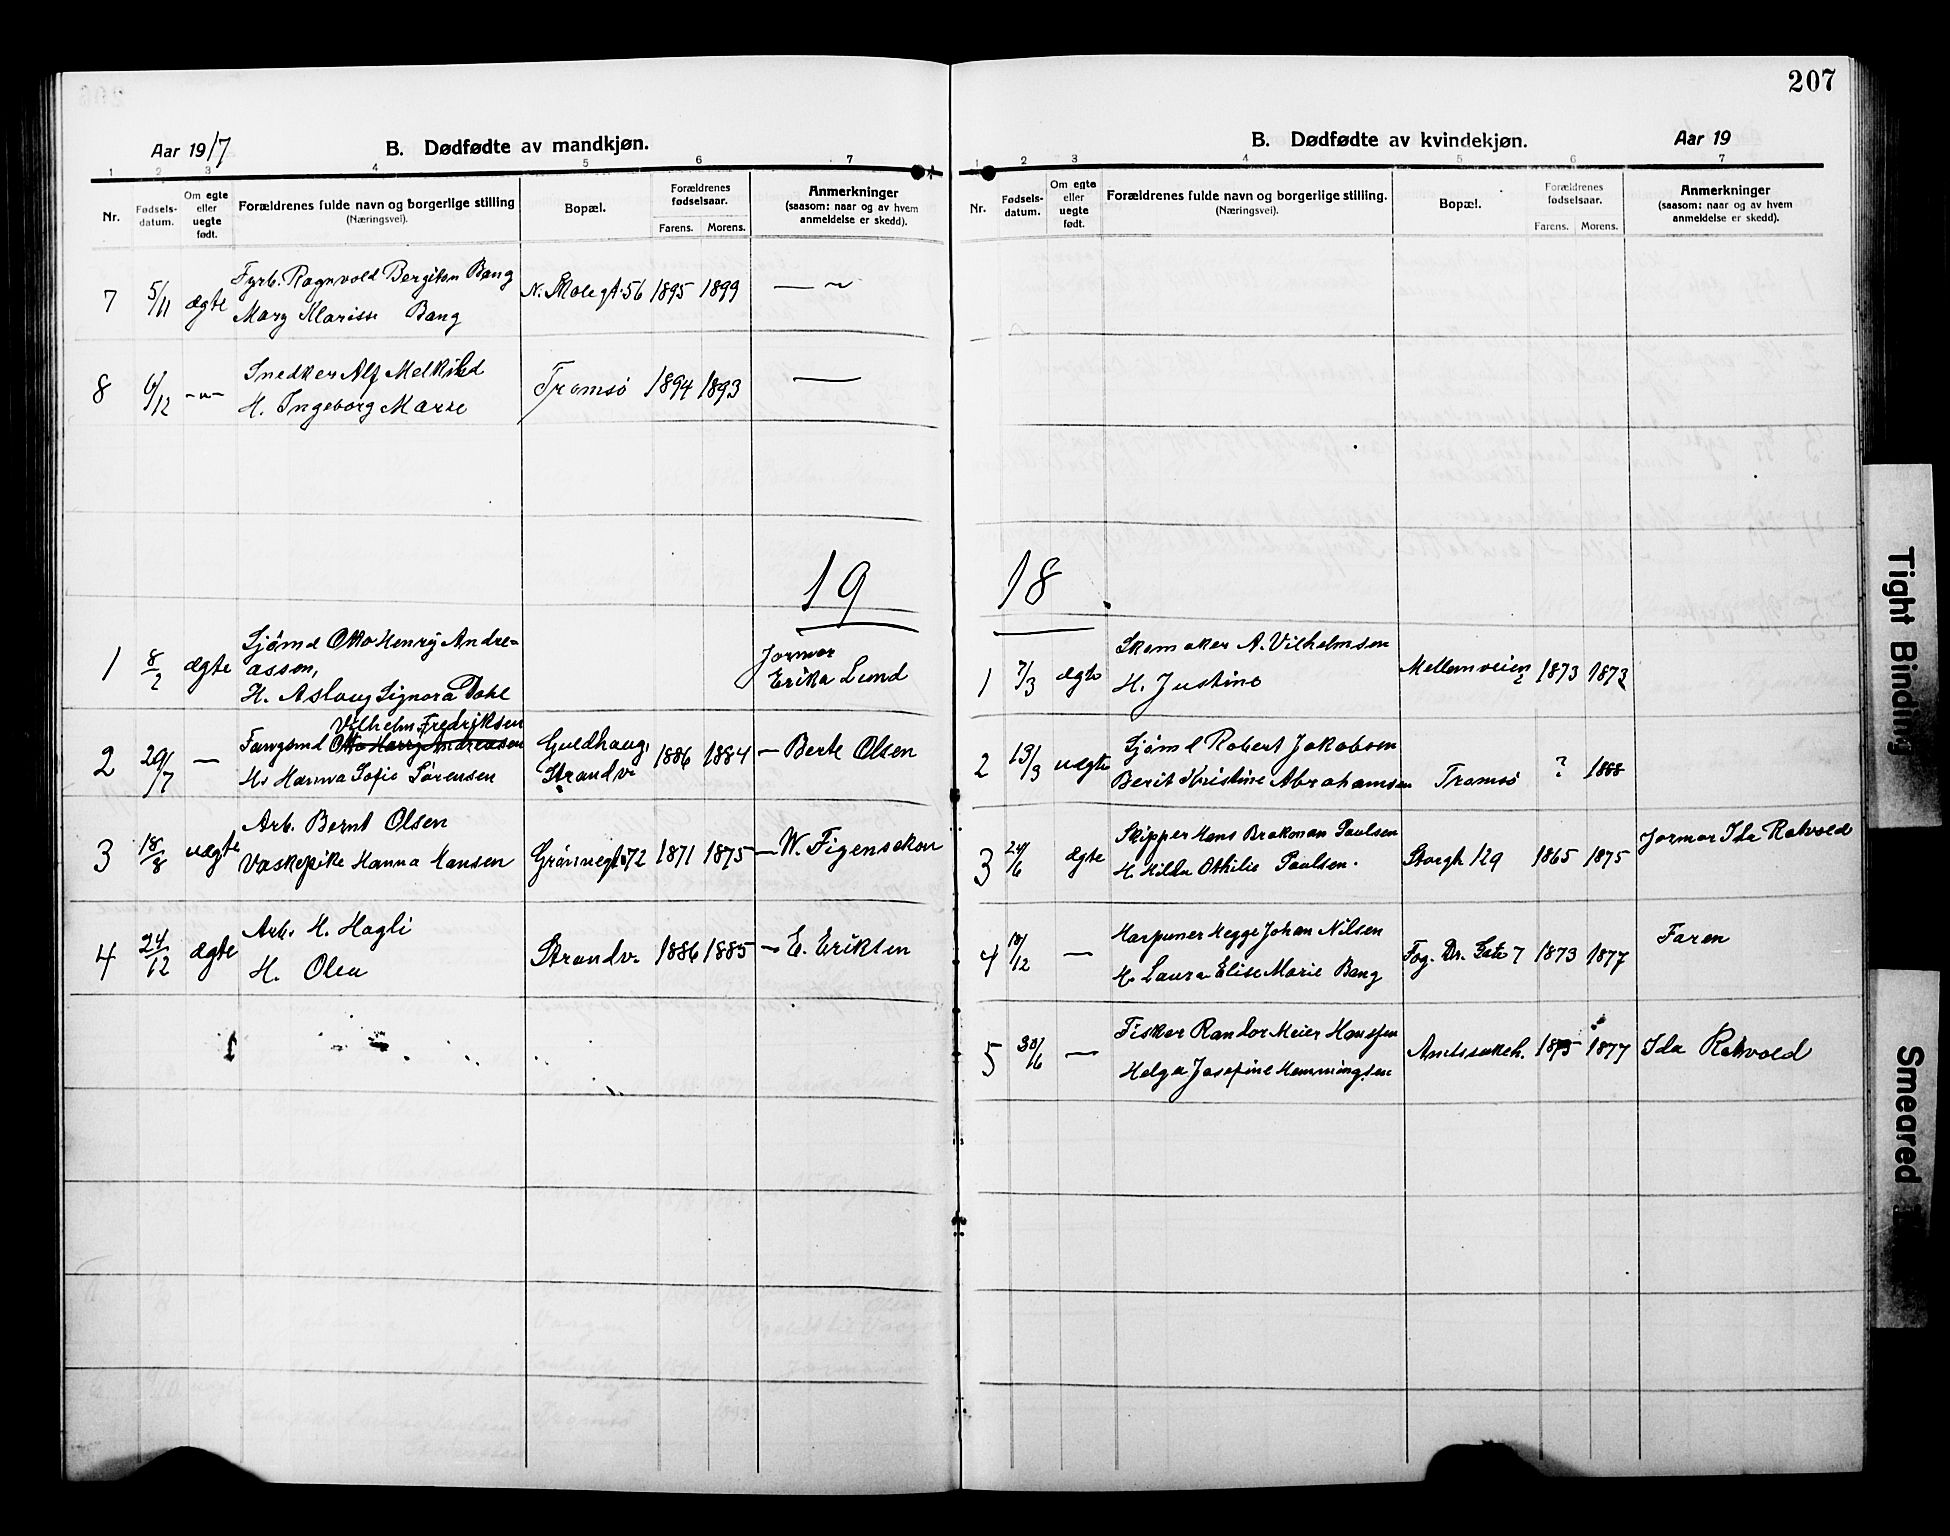 207
Aar 1917
B. Dødfødte av mandkjøn.
1 2 3 4 5 6 7
Nr.
Fødsels-
datum.
Om egte
eller
uegte
født.
Forældrenes fulde navn og borgerlige stilling
(Næringsvei).
Bopæl.
Forældrenes
fødselsaar.
Farens. Morens.
Anmerkninger
(saasom: naar og av hvem
anmeldelse er skedd).
Fyrb. Ragnvold Bergiton Bang
7 5/11 ægte N. Skolegt. 56 1895 1899 — ~
Mary Klarisse Bang
Snedker Alf Melkild
8 6/12 -"- Tromsø 1894 1893 —
H. Ingeborg Marie
19
Sjømd Otto Henry Andre=
1 8/2 ægte assen,
H. Aslaug Signora Dahl
Jormor
Erika Lund
Vilhelm Fredriksen
2 29/7 — Fangsmd Otto Harry Andreasen
H. Hanna Sofie Sørensen
Guldhaug,
Strandv.
1886 1884 — Berte Olsen
Arb. Bernt Olsen
3 18/8 uægte Vaskepike Hanna Hansen Grønnegt 72 1871 1875 — W. Figenschou
Arb. H. Hagli
4 24/12 ægte H. Olea Strandv. 1886 1885 — E. Eriksen
B. Dødfødte av kvindekjøn.
Aar 19
1 2 3 4 5 6 7
Nr.
Fødsels-
datum.
Om egte
eller
uegte
født.
Forældrenes fulde navn og borgerlige stilling.
(Næringsvei).
Bopæl.
Forældrenes
fødselsaar.
Farens. Morens.
Anmerkninger
(saasom: naar og av hvem
anmeldelse er skedd).
18
Skomaker A. Vilhelmsen
1 7/3 ægte H. Justine Mellemveien 1873 1873
Sjømd Robert Jakobsen
2 19/3 uægte Berit Kristine Abrahamsen Tromsø ? 1888
Skipper Hans Brakman Paulsen
3 24/6 ægte H. Hilda Othilie Paulsen. Storgt 129 1865 1875 Jormor Ida Rotvold
Harpuner Hegge Johan Nilsen
4 10/12 — H. Laura Elise Marie Bang Fog. Dr. Gate 7 1873 1877 Faren
Fisker Randor Meier Hanssen
5 30/6 — Helga Josefine Hemmingsen 1875 1877 Ida Rotvold
Tight Binding
Smeared